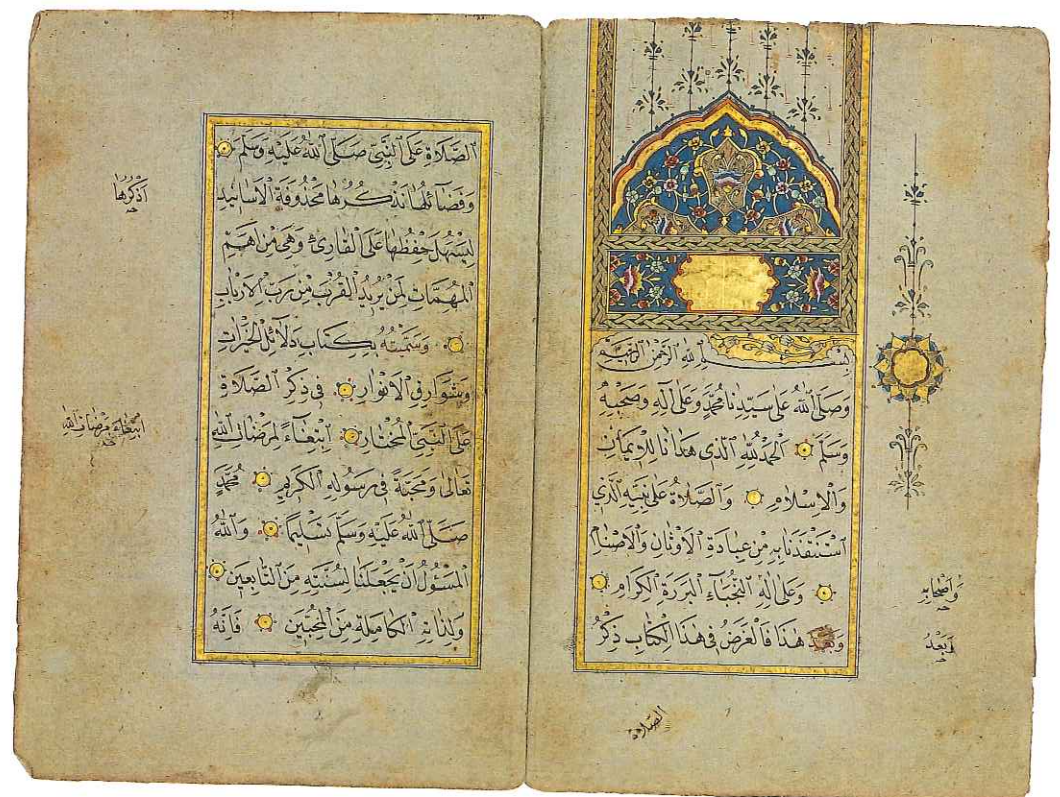 بِسْمِ اللهِ الرَّحْمٰنِ الرَّحِيمِ
وَصَلَّى اللهُ عَلَى سَيِّدِنَا مُحَمَّدٍ وَعَلَى آلِهِ وَصَحْبِهِ
وَسَلَّمَ اَلْحَمْدُ لِلّٰهِ الَّذِي هَدَانَا لِلْاِيمَانِ
وَالْاِسْلَامِ وَالصَّلَاةُ عَلَى نَبِيِّهِ الَّذِي
اسْتَنْقَذَنَا بِهِ مِنْ عِبَادَةِ الْاَوْثَانِ وَالْاَصْنَامِ
وَعَلَى اٰلِهِ النُّجَبَاءِ الْبَرَرَةِ الْكِرَامِ
وَبَعْدَ هٰذَا فَالْغَرَضُ فِي هٰذَا الْكِتَابِ ذِكْرُ
وَاَصْحَابِهِ
بَعْدُ
الصَّلَاة
الصَّلَاةِ عَلَى النَّبِيِّ صَلَّى اللهُ عَلَيْهِ وَسَلَّمَ
وَفَضَائِلُهَا نَذْكُرُهَا مَحْذُوفَةَ الْاَسَانِيدِ
لِيَسْهُلَ حِفْظُهَا عَلَى الْقَارِئِ وَهِيَ مِنْ اَهَمِّ
الْمُهِمَّاتِ لِمَنْ يُرِيدُ الْقُرْبَ مِنْ رَبِّ الْاَرْبَابِ
وَسَمَّيْتُهُ بِكِتَابِ دَلَائِلِ الْخَيْرَاتِ
وَشَوَارِقِ الْاَنْوَارِ فِي ذِكْرِ الصَّلَاةِ
عَلَى النَّبِيِّ الْمُخْتَارِ ابْتِغَاءً لِمَرْضَاتِ اللهِ
تَعَالَى وَمَحَبَّةً فِي رَسُولِهِ الْكَرِيمِ مُحَمَّدٍ
صَلَّى اللهُ عَلَيْهِ وَسَلَّمَ تَسْلِيمًا وَاللهُ
الْمَسْئُولُ اَنْ يَجْعَلَنَا لِسُنَّتِهِ مِنَ التَّابِعِينَ
وَلِذَاتِهِ الْكَامِلَةِ مِنَ الْمُحِبِّينَ فَاِنَّهُ
اَذْكُرُهَا
ابْتِغَاءَ مَرْضَاتِ اللهِ